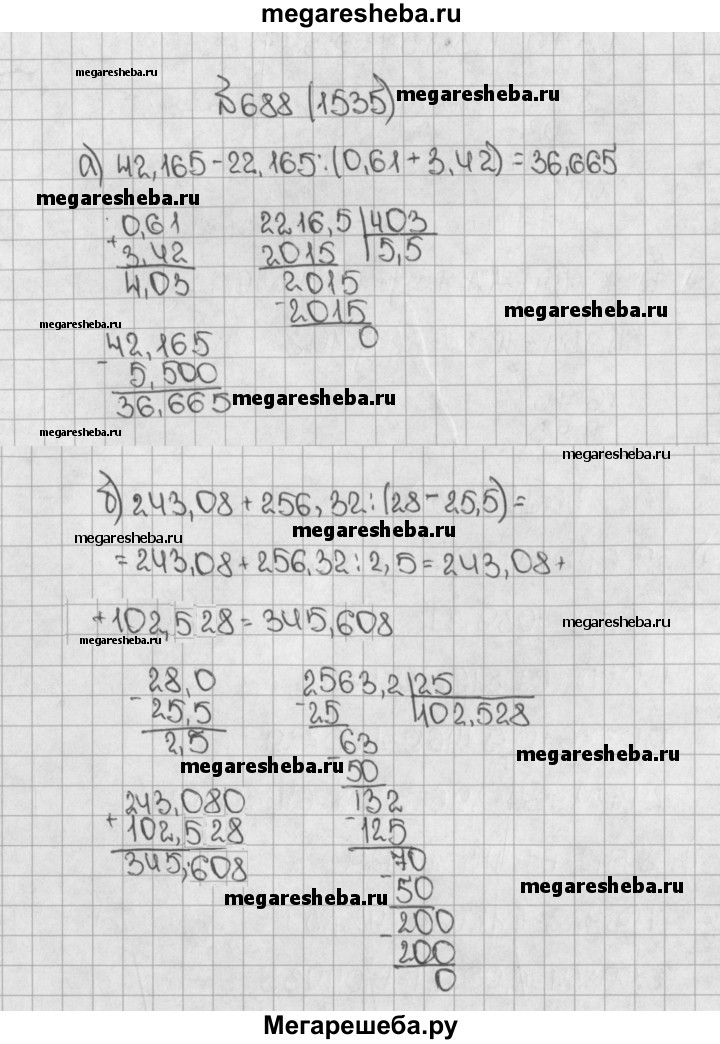 megaresheba.ru
megaresheba.ru
№688 (1535) megaresheba.ru
а) 42,165-22,165:(0,61+3,42)=36,665
megaresheba.ru
0,61 2216,5 403
+ 3,42 2015 5,5
4,03 2015
-2015 megaresheba.ru
megaresheba.ru 0
42,165
- 5,500
36,665 megaresheba.ru
megaresheba.ru
megaresheba.ru
б) 243,08+256,32:(28-25,5)=
megaresheba.ru
megaresheba.ru
=243,08+256,32:2,5=243,08+
+102,528=345,608 megaresheba.ru
megaresheba.ru
28,0 2563,2 25
- 25,5 -25 102,528
2,5 63
megaresheba.ru - 50 megaresheba.ru
243,080 132
+ 102,528 - 125
345,608 70
megaresheba.ru - 50 megaresheba.ru
200
- 200
0
Мегарешеба.ру